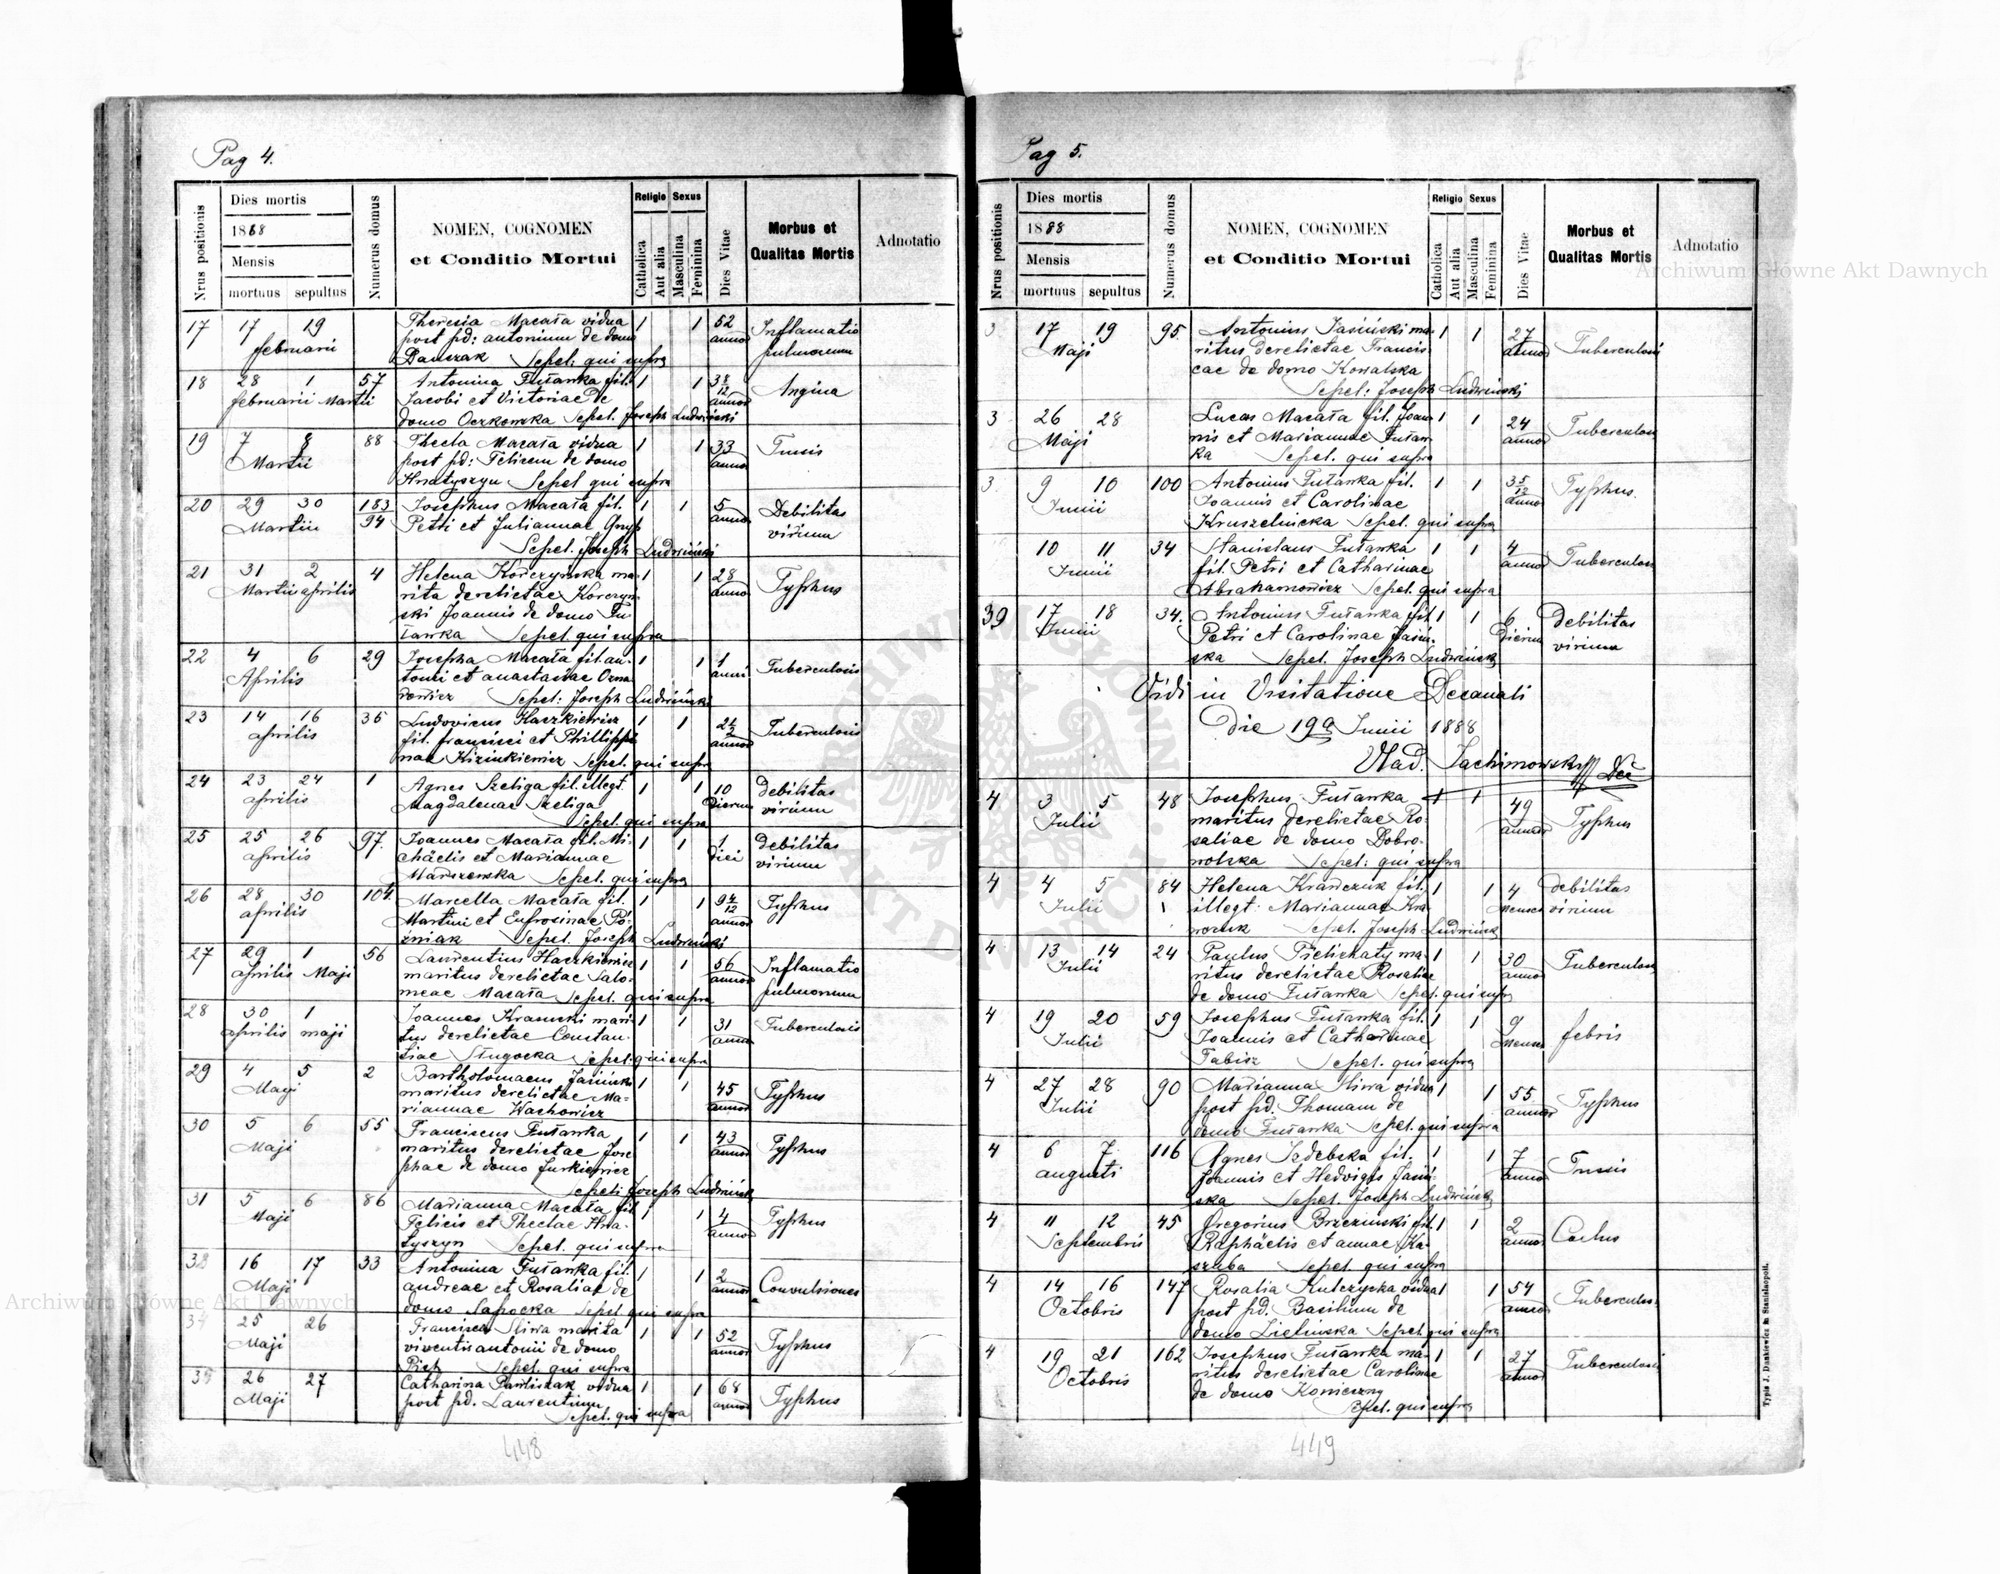 Pag 4.
Nrus positionis
Dies mortis
1888
Mensis
mortuus sepultus
Numerus domus
NOMEN, COGNOMEN
et Conditio Mortui
Religio Sexus
Catholica
Aut alia
Masculina
Feminina
Dies Vitae
Morbus et
Qualitas Mortis
Adnotatio
17 17 19 Theresia Macała vidua 1 1 52 Inflamatio
februarii post pd: antonium de domo annor pulmonum
Sepel: qui supra
18 28 1 57 Antonina Futarka fil. 1 1 3 8/12 Angina
februarii Martii Jacobi et Victoriae de annor
domo Oczkowska Sepel. Joseph Ludwiński
19 7 8 88 Thecla Macała vidua 1 1 33 Tussis
Martii post pd: Felicem de domo annor
Hnatyszyn Sepel qui supra
20 29 30 183 Josephus Macała fil. 1 1 5 Debilitas
Martii 94 Petri et Juliannae annor virium
Sepel. Joseph Ludwiński
21 31 2 4 Helena Korczyńska ma- 1 1 28 Typhus
Martii aprilis rita derelictae Korczyń- annor
ski Joannis de domo Fu-
tarka Sepel. qui supra
22 4 6 29 Josepha Macała fil. an- 1 1 1 Tuberculosis
Aprilis tonii et anastasiae anni
Sepel: Joseph Ludwiński
23 14 16 35 Ludovicus Haczkiewicz 1 1 Tuberculosis
aprilis fil. francisci et Phillippi- annor
nae Sepel. qui supra
24 23 24 1 Agnes Szeliga fil. illegt. 1 1 10 debilitas
aprilis Magdalenae Szeliga dierum virium
Sepel. qui supra
25 25 26 97. Joannes Macała fil. Mi- 1 1 1 debilitas
aprilis chäelis et Mariannae diei virium
Marszewska Sepel. qui supra
26 28 30 104. Marcella Macała fil. 1 1 Typhus
aprilis Martini et Eufrosinae Po- annor
źniak Sepel. Joseph Ludwiński
27 29 1 56 Laurentius Haczkiewicz 1 1 56 Inflamatio
aprilis Maji maritus derelictae Salo- annor pulmonum
meae Macała Sepel. qui supra
28 30 1 Joannes Krasucki mari- 1 1 31 Tuberculosis
aprilis maji tus derelictae Constan- anni
tiae Sługocka Sepel. qui supra
29 4 5 2 Bartholomaeus Jasiński 1 1 45 Typhus
Maji maritus derelictae Ma- annor
riannae Wachowicz
30 5 6 55 Franciscus Futarka 1 1 43 Typhus
Maji maritus derelictae Jose- annor
phae de domo Jurkiewicz
Sepel: Joseph Ludwiński
31 5 6 86 Marianna Macała fil. 1 1 4 Typhus
Maji Felicis et Theclae Hna- annor
tyszyn Sepel. qui supra
16 17 33 Antonina Futarka fil. 1 1 2 Convulsiones
Maji andreae et Rosaliae de annor
domo Sapocka Sepel. qui supra
25 26 Francisca Sliwa marita 1 1 52 Typhus
Maji viventis antonii de domo annor
Pich Sepel. qui supra
35 26 27 Catharina Pawliszak vidua 1 1 68 Typhus
Maji post pd. Laurentium annor
Sepel. qui supra
448
Pag 5.
Nrus positionis
Dies mortis
1888
Mensis
mortuus sepultus
Numerus domus
NOMEN, COGNOMEN
et Conditio Mortui
Religio Sexus
Catholica
Aut alia
Masculina
Feminina
Dies Vitae
Morbus et
Qualitas Mortis
Adnotatio
3 17 19 95. Antonius Jasiński ma- 1 1 27 Tuberculosis
Maji ritus derelictae Francis- annor
cae de domo Kowalska
Sepel: Joseph Ludwiński
3 26 28 Lucas Macała fil. Joan- 1 1 24 Tuberculosis
Maji nis et Mariannae Futar- annor
ka Sepel. qui supra
3 9 10 100 Antonius Futarka fil. 1 1 3 5/12 Typhus.
Junii Joannis et Carolinae annor
Kruszelnicka Sepel. qui supra
10 11 34 Stanislaus Futarka 1 1 4 Tuberculosis
Junii fil. Petri et Catharinae annor
Abrahamowicz Sepel. qui supra
39 17 18 34. Antonius Futarka fil. 1 1 6 Debilitas
Junii Petri et Carolinae Jasiń- dierum virium
ska Sepel. Joseph Ludwiński
Vidi in Visitatione Decanali
Die 19a Junii 1888
Vlad. Jachimowski Dec
4 3 5 48 Josephus Futarka 1 1 49 Typhus
Julii maritus derelictae Ro- annor
saliae de domo Dobro-
wolska Sepel: qui supra
4 4 5 84 Helena Krawczuk fil. 1 1 4 debilitas
Julii illegt. Mariannae Kra- menses virium
wczuk Sepel. Joseph Ludwiński
4 13 14 24 Paulus ma- 1 1 30 Tuberculosis
Julii ritus derelictae Rosaliae annor
de domo Futarka Sepel. qui supra
4 19 20 59 Josephus Futarka fil. 1 1 9 febris
Julii Joannis et Catharinae menses
Tabisz Sepel. qui supra
4 27 28 90 Marianna Sliwa vidua 1 1 55 Typhus
Julii post pd. Thomam de annor
domo Futarka Sepel. qui supra
4 6 7 116 Agnes fil. 1 1 7 Tussis
augusti Joannis et Hedvigis Jasiń- annor
ska Sepel. Joseph Ludwiński
4 11 12 45 Gregorius Brzezinski fil. 1 1 2
Septembris Raphäelis et annae Ka- annor
szuba Sepel. qui supra
4 14 16 147 Rosalia Kulczycka vidua 1 1 54 Tuberculos.
Octobris post pd. Basilium de annor
domo Zielinska Sepel. qui supra
4 19 21 162 Josephus Futarka ma- 1 1 27 Tuberculosis
Octobris ritus derelictae Carolinae annor
de domo Konieczny
Sepel. qui supra
449
Typis J. Dankiewicz in Stanislaopoli.
Archiwum Główne Akt Dawnych
Archiwum Główne Akt Dawnych
ARCHIWUM GŁÓWNE AKT DAWNYCH